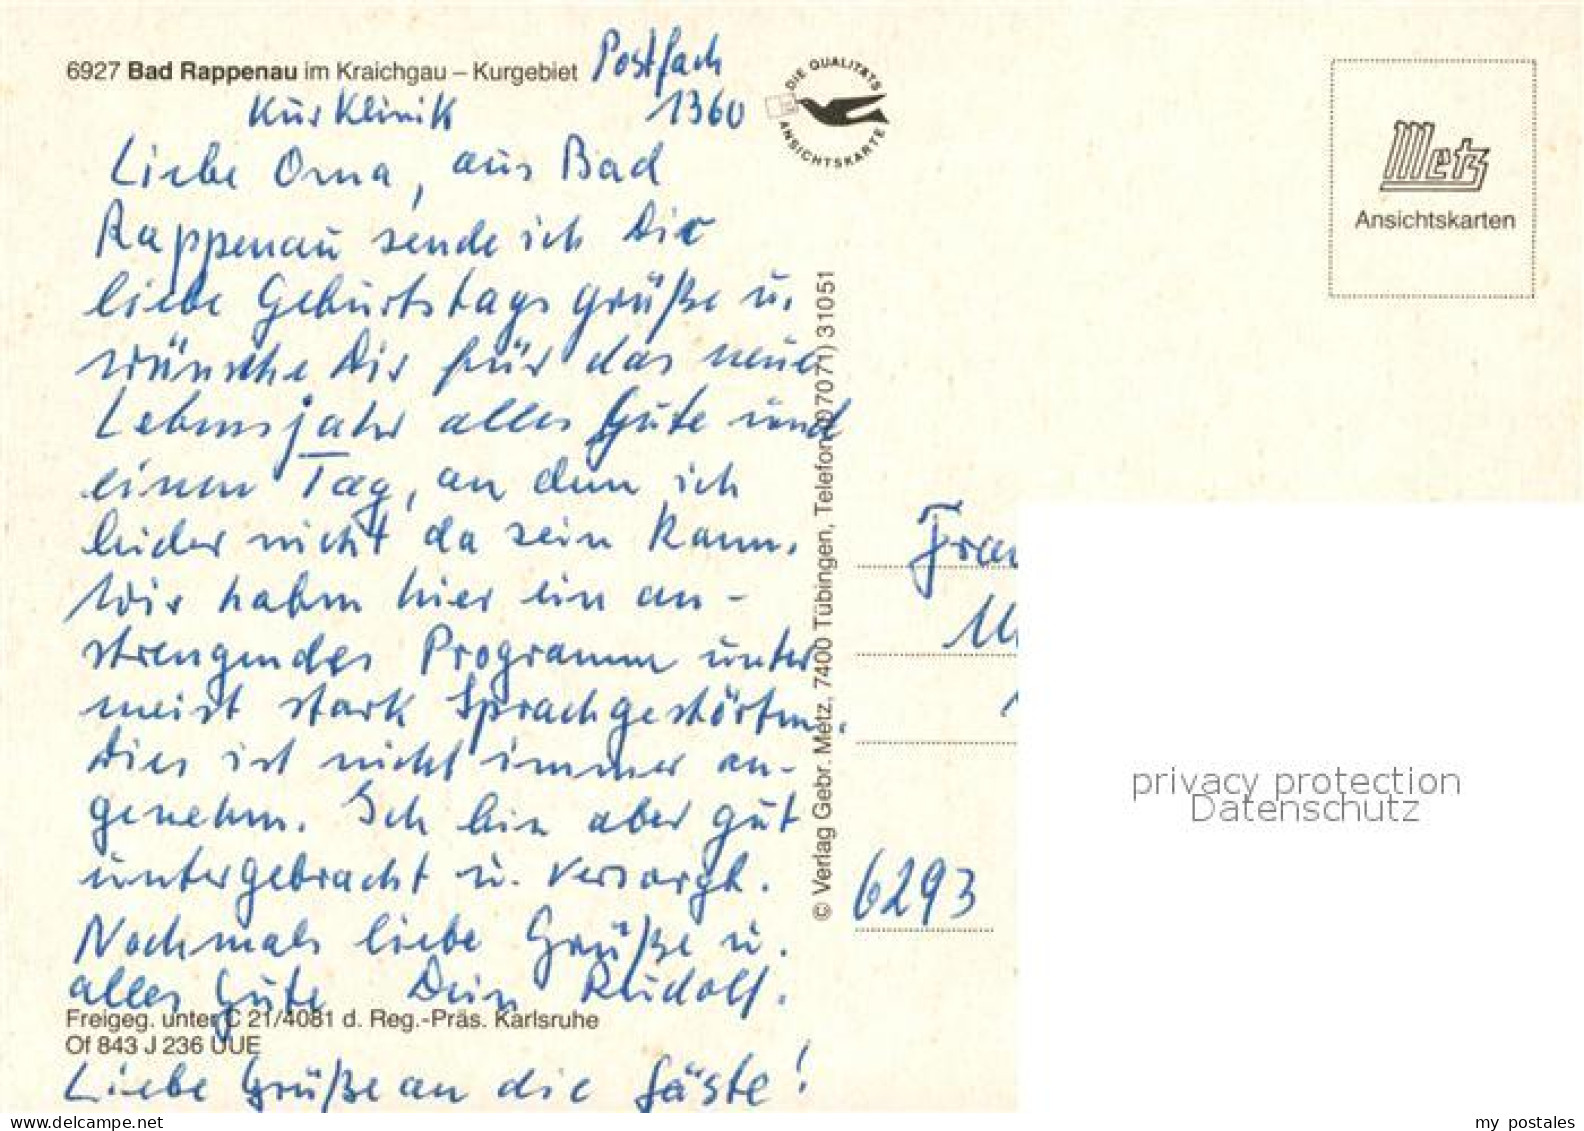 6927 Bad Rappenau im Kraichgau – Kurgebiet
Postfach
1360
Kurklinik
Liebe Oma, aus Bad
Rappenau sende ich Dir
liebe Geburtstagsgrüße u.
wünsche Dir für das neue
Lebensjahr alles Gute und
einen Tag, an dem ich
leider nicht da sein kann.
Wir haben hier ein an-
strengendes Programm unter
meist stark Sprachgestörten.
Dies ist nicht immer an-
genehm. Ich bin aber gut
untergebracht u. versorgt.
Nochmals liebe Grüße u.
alles Gute Dein Rudolf.
Freigeg. unter C 21/4081 d. Reg.-Präs. Karlsruhe
Of 843 J 236 UUE
Liebe Grüße an die Gäste!
DIE QUALITÄTS
ANSICHTSKARTE
© Verlag Gebr. Metz, 7400 Tübingen, Telefon (07071) 31051
Metz
Ansichtskarten
6293
privacy protection
Datenschutz
www.delcampe.net
my_postales